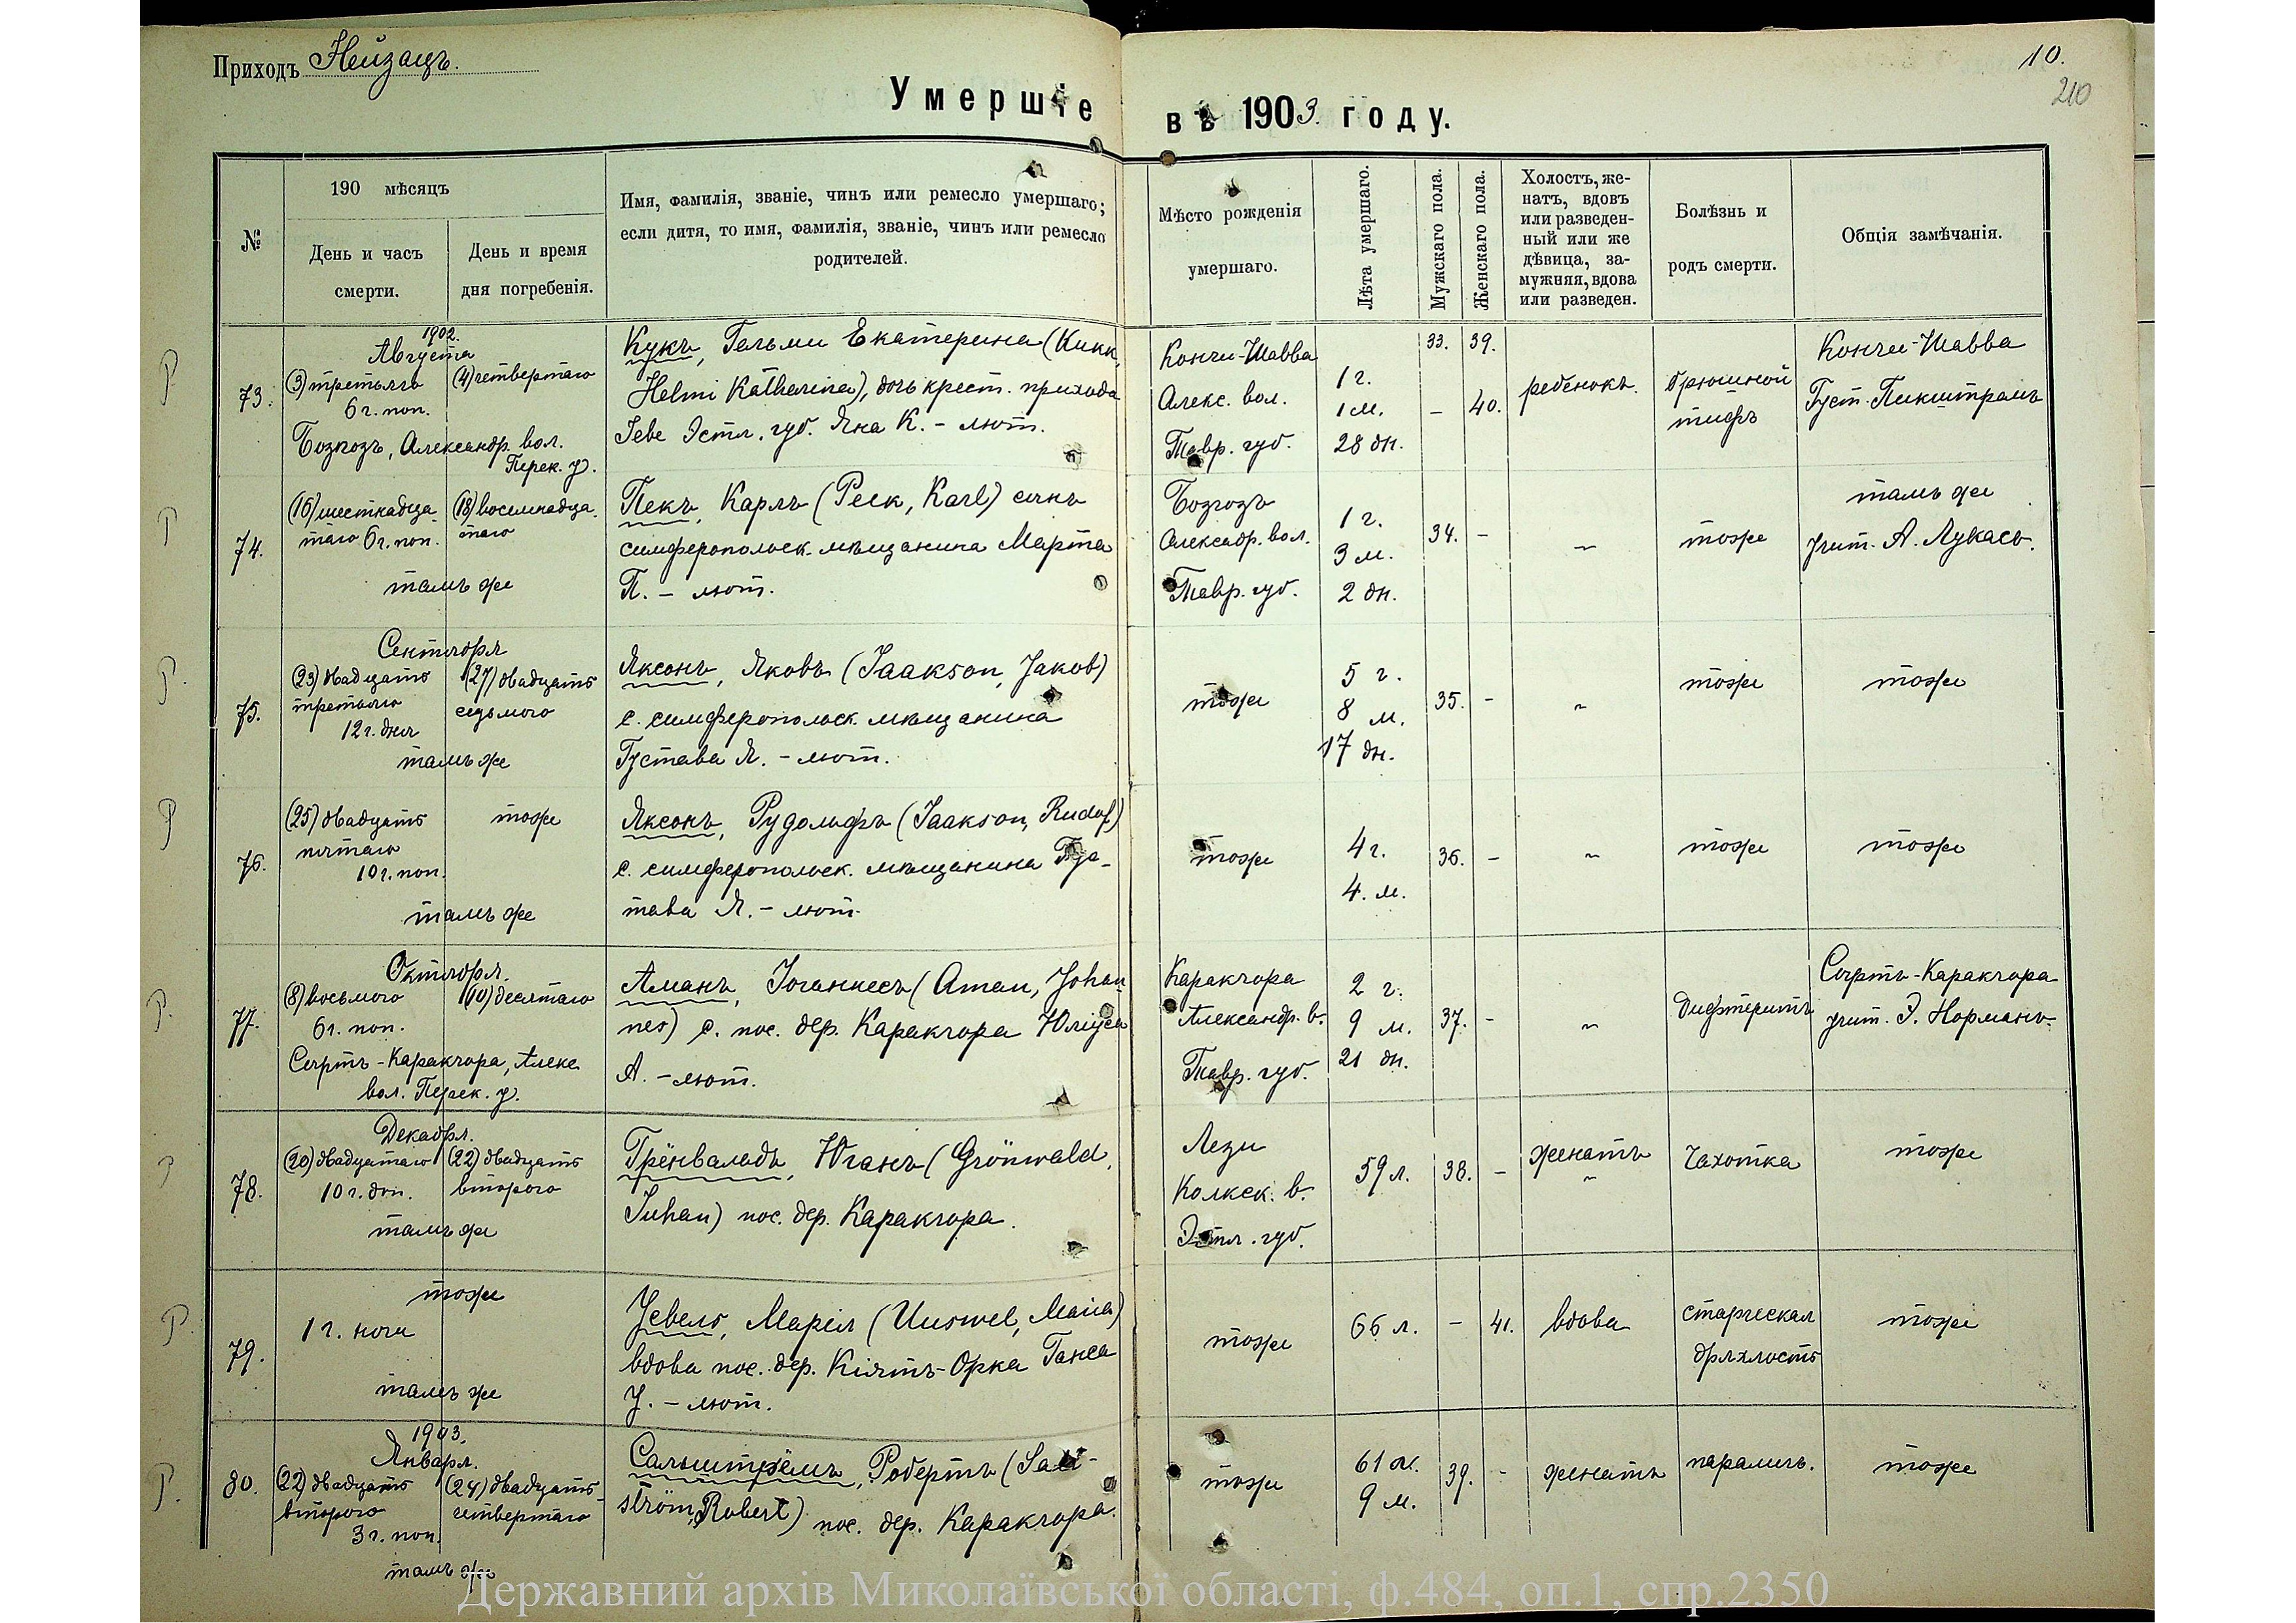 Приходъ Нейзацъ.
10.
210
Умершіе въ 1903. году.
№
190 мѣсяцъ
День и часъ смерти.
День и время дня погребенія.
Имя, фамилія, званіе, чинъ или ремесло умершаго;
если дитя, то имя, фамилія, званіе, чинъ или ремесло
родителей.
Мѣсто рожденія
умершаго.
Лѣта умершаго.
Мужскаго пола.
Женскаго пола.
Холостъ, же-
натъ, вдовъ
или разведен-
ный или же
дѣвица, за-
мужняя, вдова
или разведен.
Болѣзнь и
родъ смерти.
Общія замѣчанія.
33. 39.
73.
1902.
Августа
(3) третьяго
6 ч. поп.
(4) четвертаго
Бозгозъ, Александр. вол.
Перек. у.
Кукъ, Гельми Екатерина (Кикк,
Helmi Katharina), дочь крест. прихода
Јеве Эстл. губ. Яна К. - лют.
Кончи-Шавва
Алекс. вол.
Тавр. губ.
1 г.
1 м.
28 дн.
- 40.
ребенокъ.
брюшной
тифъ
Кончи-Шавва
Густ. Пикштремъ
74.
(16) шестнадца
таго 6 ч. поп.
(18) восемнадца.
таго
тамъ же
Пекъ, Карлъ (Peek, Karl) сынъ
симферопольск. мѣщанина Марта
П. - лют.
Бозгозъ
Александр. вол.
Тавр. губ.
1 г.
3 м.
2 дн.
34. -
~
тоже
тамъ же
учит. А. Лукасъ.
75.
Сентября
(23) двадцать
третьяго
12 ч. дня
(27) двадцать
седьмого
тамъ же
Яксонъ, Яковъ (Jaakson, Jakob)
с. симферопольск. мѣщанина
Густава Я. - лют.
тоже
5 г.
8 м.
17 дн.
35. -
~
тоже
тоже
76.
(25) двадцать
пятаго
10 ч. поп.
тоже
тамъ же
Яксонъ, Рудольфъ (Jaakson, Rudolf)
с. симферопольск. мѣщанина Гус-
тава Я. - лют.
тоже
4 г.
4. м.
36. -
~
тоже
тоже
77.
Октября.
(8) восьмого
6 ч. поп.
(10) десятаго
Сыртъ-Каракчора, Алекс
вол. Перек. у.
Аманъ, Іоганнесъ (Aman, Johan
nes) с. пос. дер. Каракчора Юліуса
А. - лют.
Каракчора
Александр. в.
Тавр. губ.
2 г.
9 м.
21 дн.
37. -
~
Дифтеритъ
Сыртъ-Каракчора
учит. Э. Норманъ.
78.
Декабря.
(20) двадцатаго
10 ч. доп.
(22) двадцать
второго
тамъ же
Грёнвальдъ, Юганъ (Grönwald,
Juhan) пос. дер. Каракчора.
Лези
Колкск. в.
Эстл. губ.
59 л.
38. -
женатъ
~
Чахотка
тоже
79.
тоже
1 ч. ночи
тамъ же
Усвель, Марія (Uuswel, Maria)
вдова пос. дер. Кіятъ-Орка Ганса
У. - лют.
тоже
66 л.
- 41.
вдова
старческая
дряхлость
тоже
80.
1903.
Января.
(22) двадцать
второго
3 ч. поп.
(24) двадцать
четвертаго
тамъ же
Сальштрёмъ, Робертъ (Sal-
ström, Robert) пос. дер. Каракчора.
тоже
61 л.
9 м.
39. -
женатъ
параличъ.
тоже
Державний архів Миколаївської області, ф.484, оп.1, спр.2350